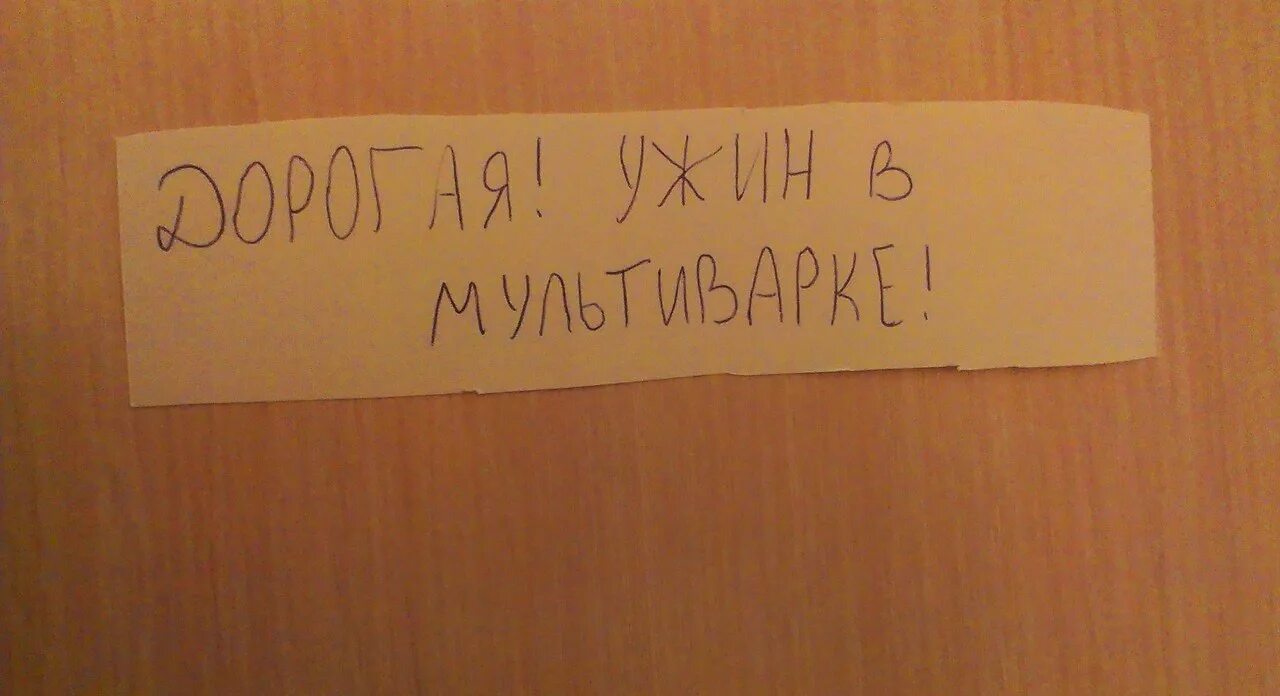 ДОРОГАЯ! УЖИН В
МУЛЬТИВАРКЕ!